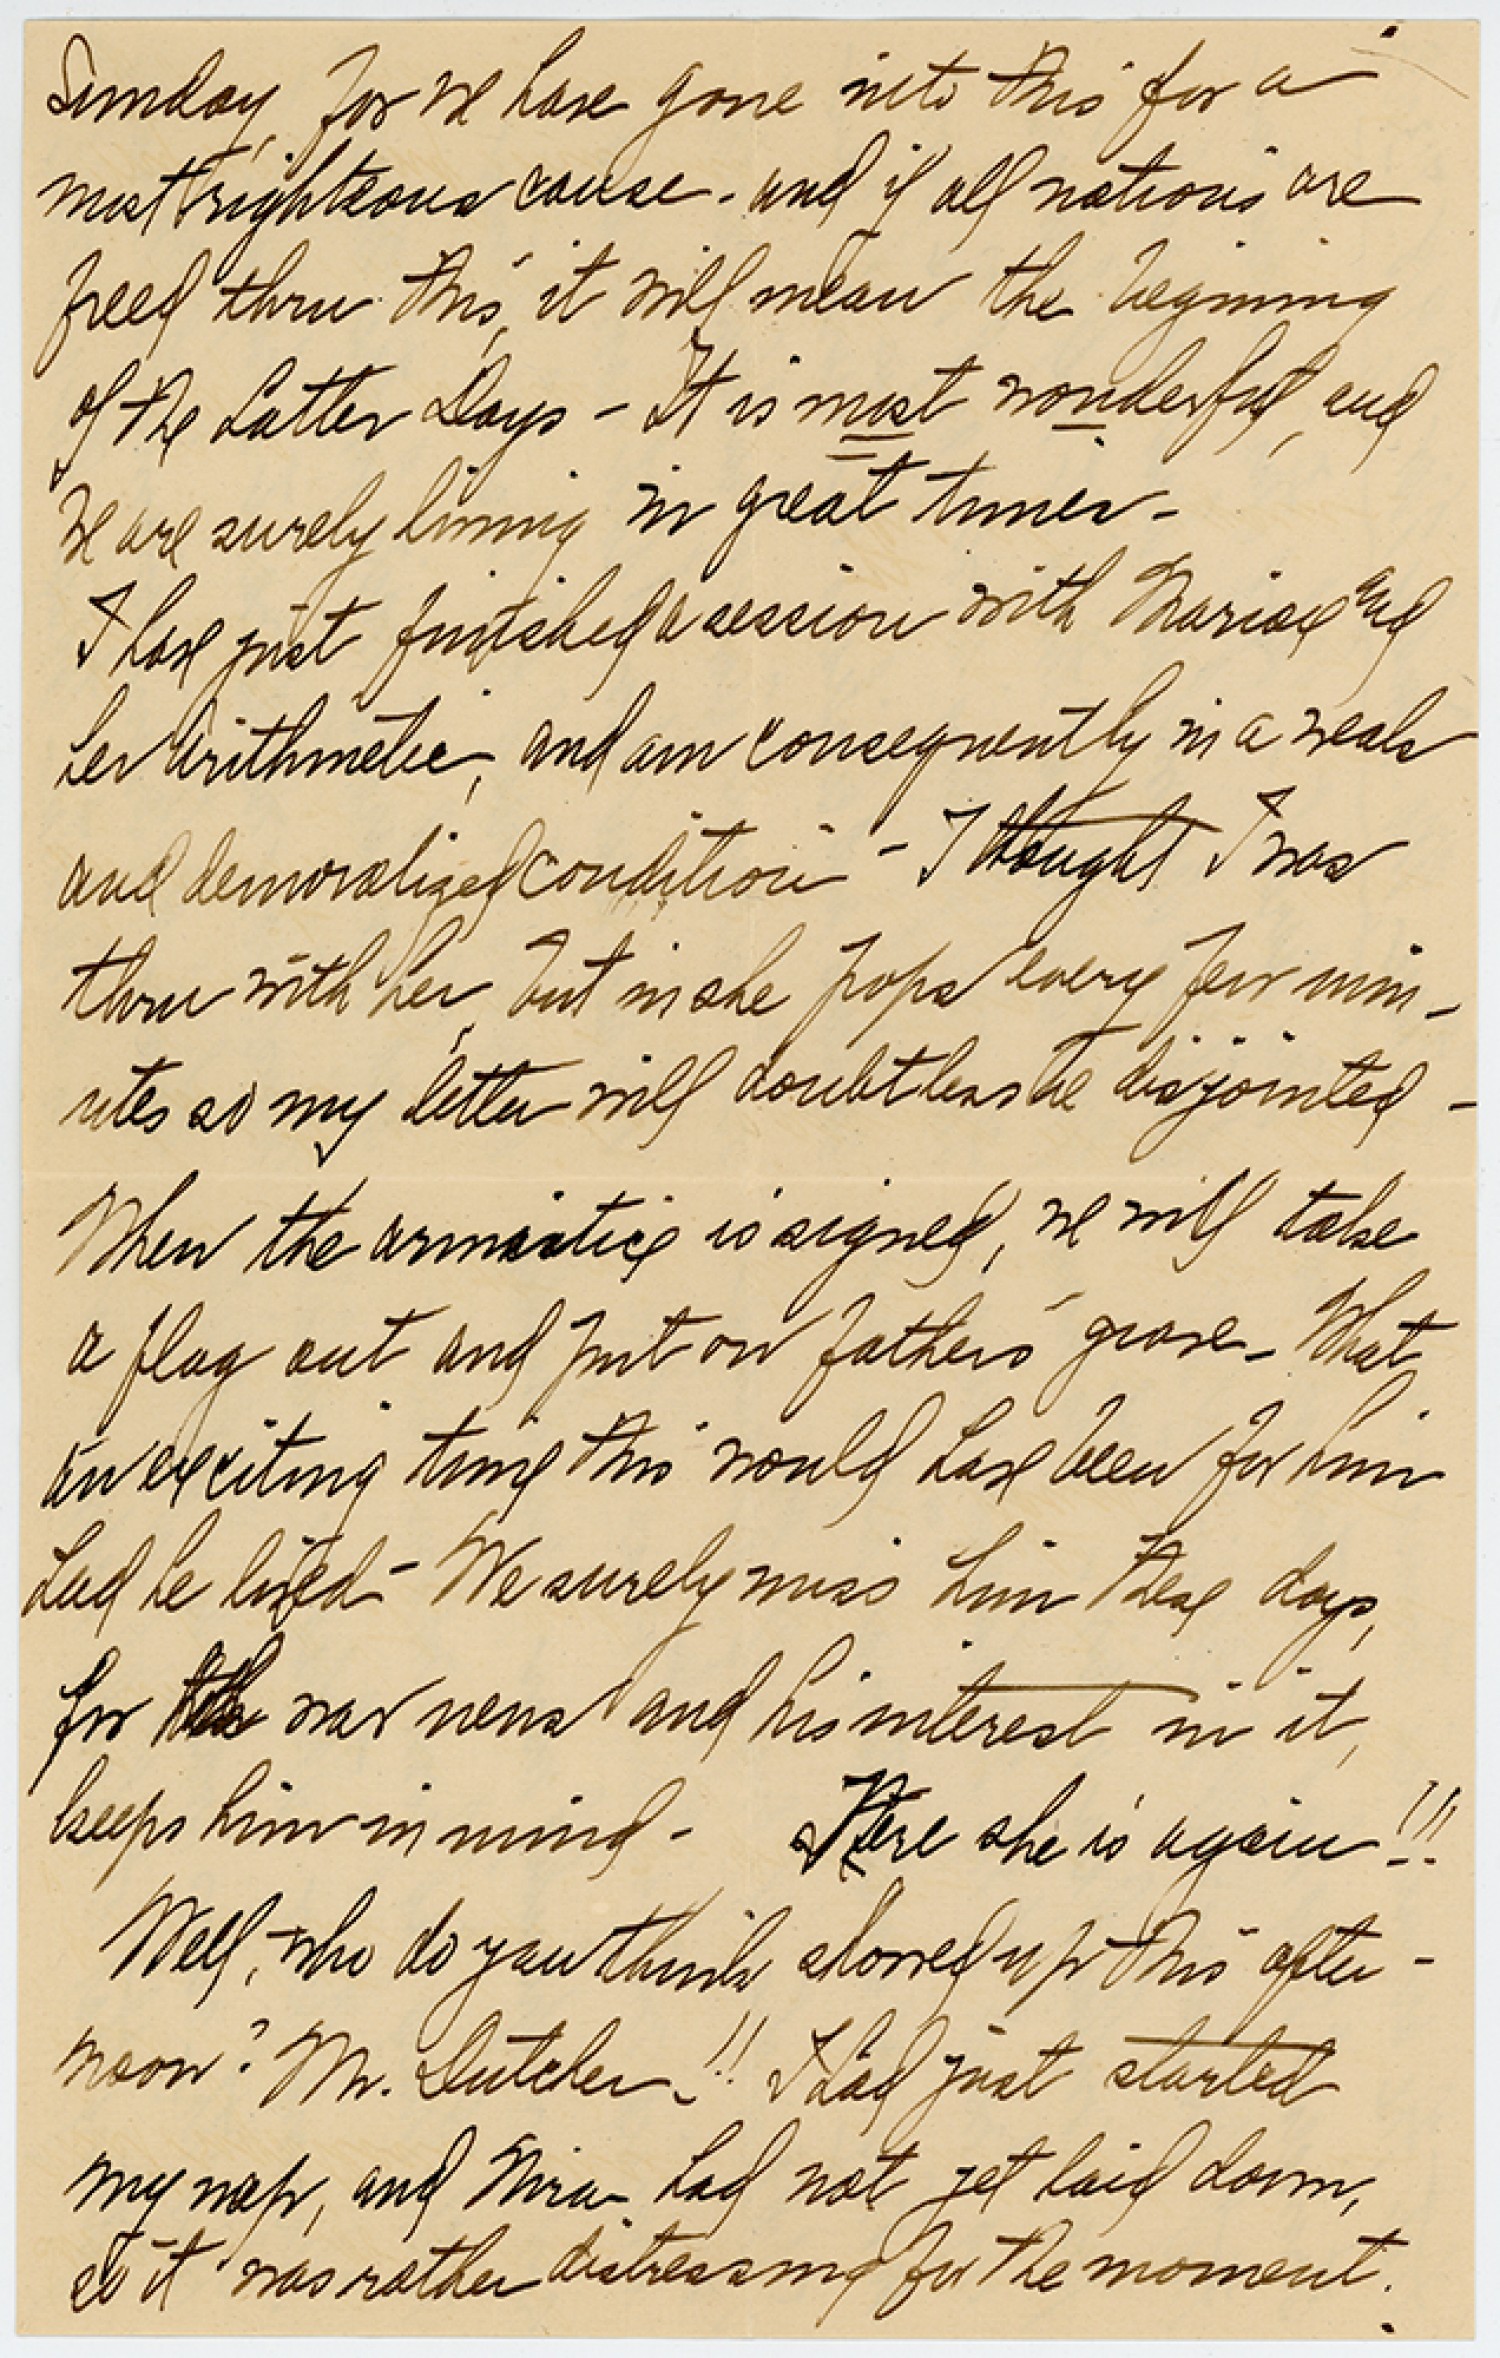 Sunday, for we have gone into this for a
most righteous cause - and if all nations are
freed thru this, it will mean the begining
of the Latter Days - It is most wonderful, and
we are surely living in great times -
I have just finished a session with Marion and
her Arithmetic, and am consequently in a weak
and demoralized condition - I thought I was
thru with her, but in she pops every few min-
utes so my letter will doubtless be disjointed -
When the armistice is signed, we will take
a flag out and put on fathers' grave - What
an exciting time this would have been for him
had he lived - We surely miss him these days,
for war news and his interest in it,
keeps him in mind - Here she is again!!!
Well, who do you think showed up this after-
noon? Mr. Dutcher -!! I had just started
my nap, and Nira had not yet laid down,
so it was rather distressing for the moment.